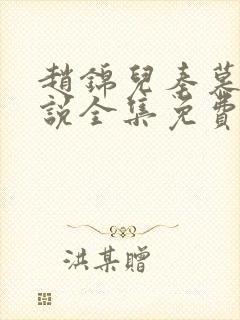 趙錦兒秦慕
說全集免費
洪某贈